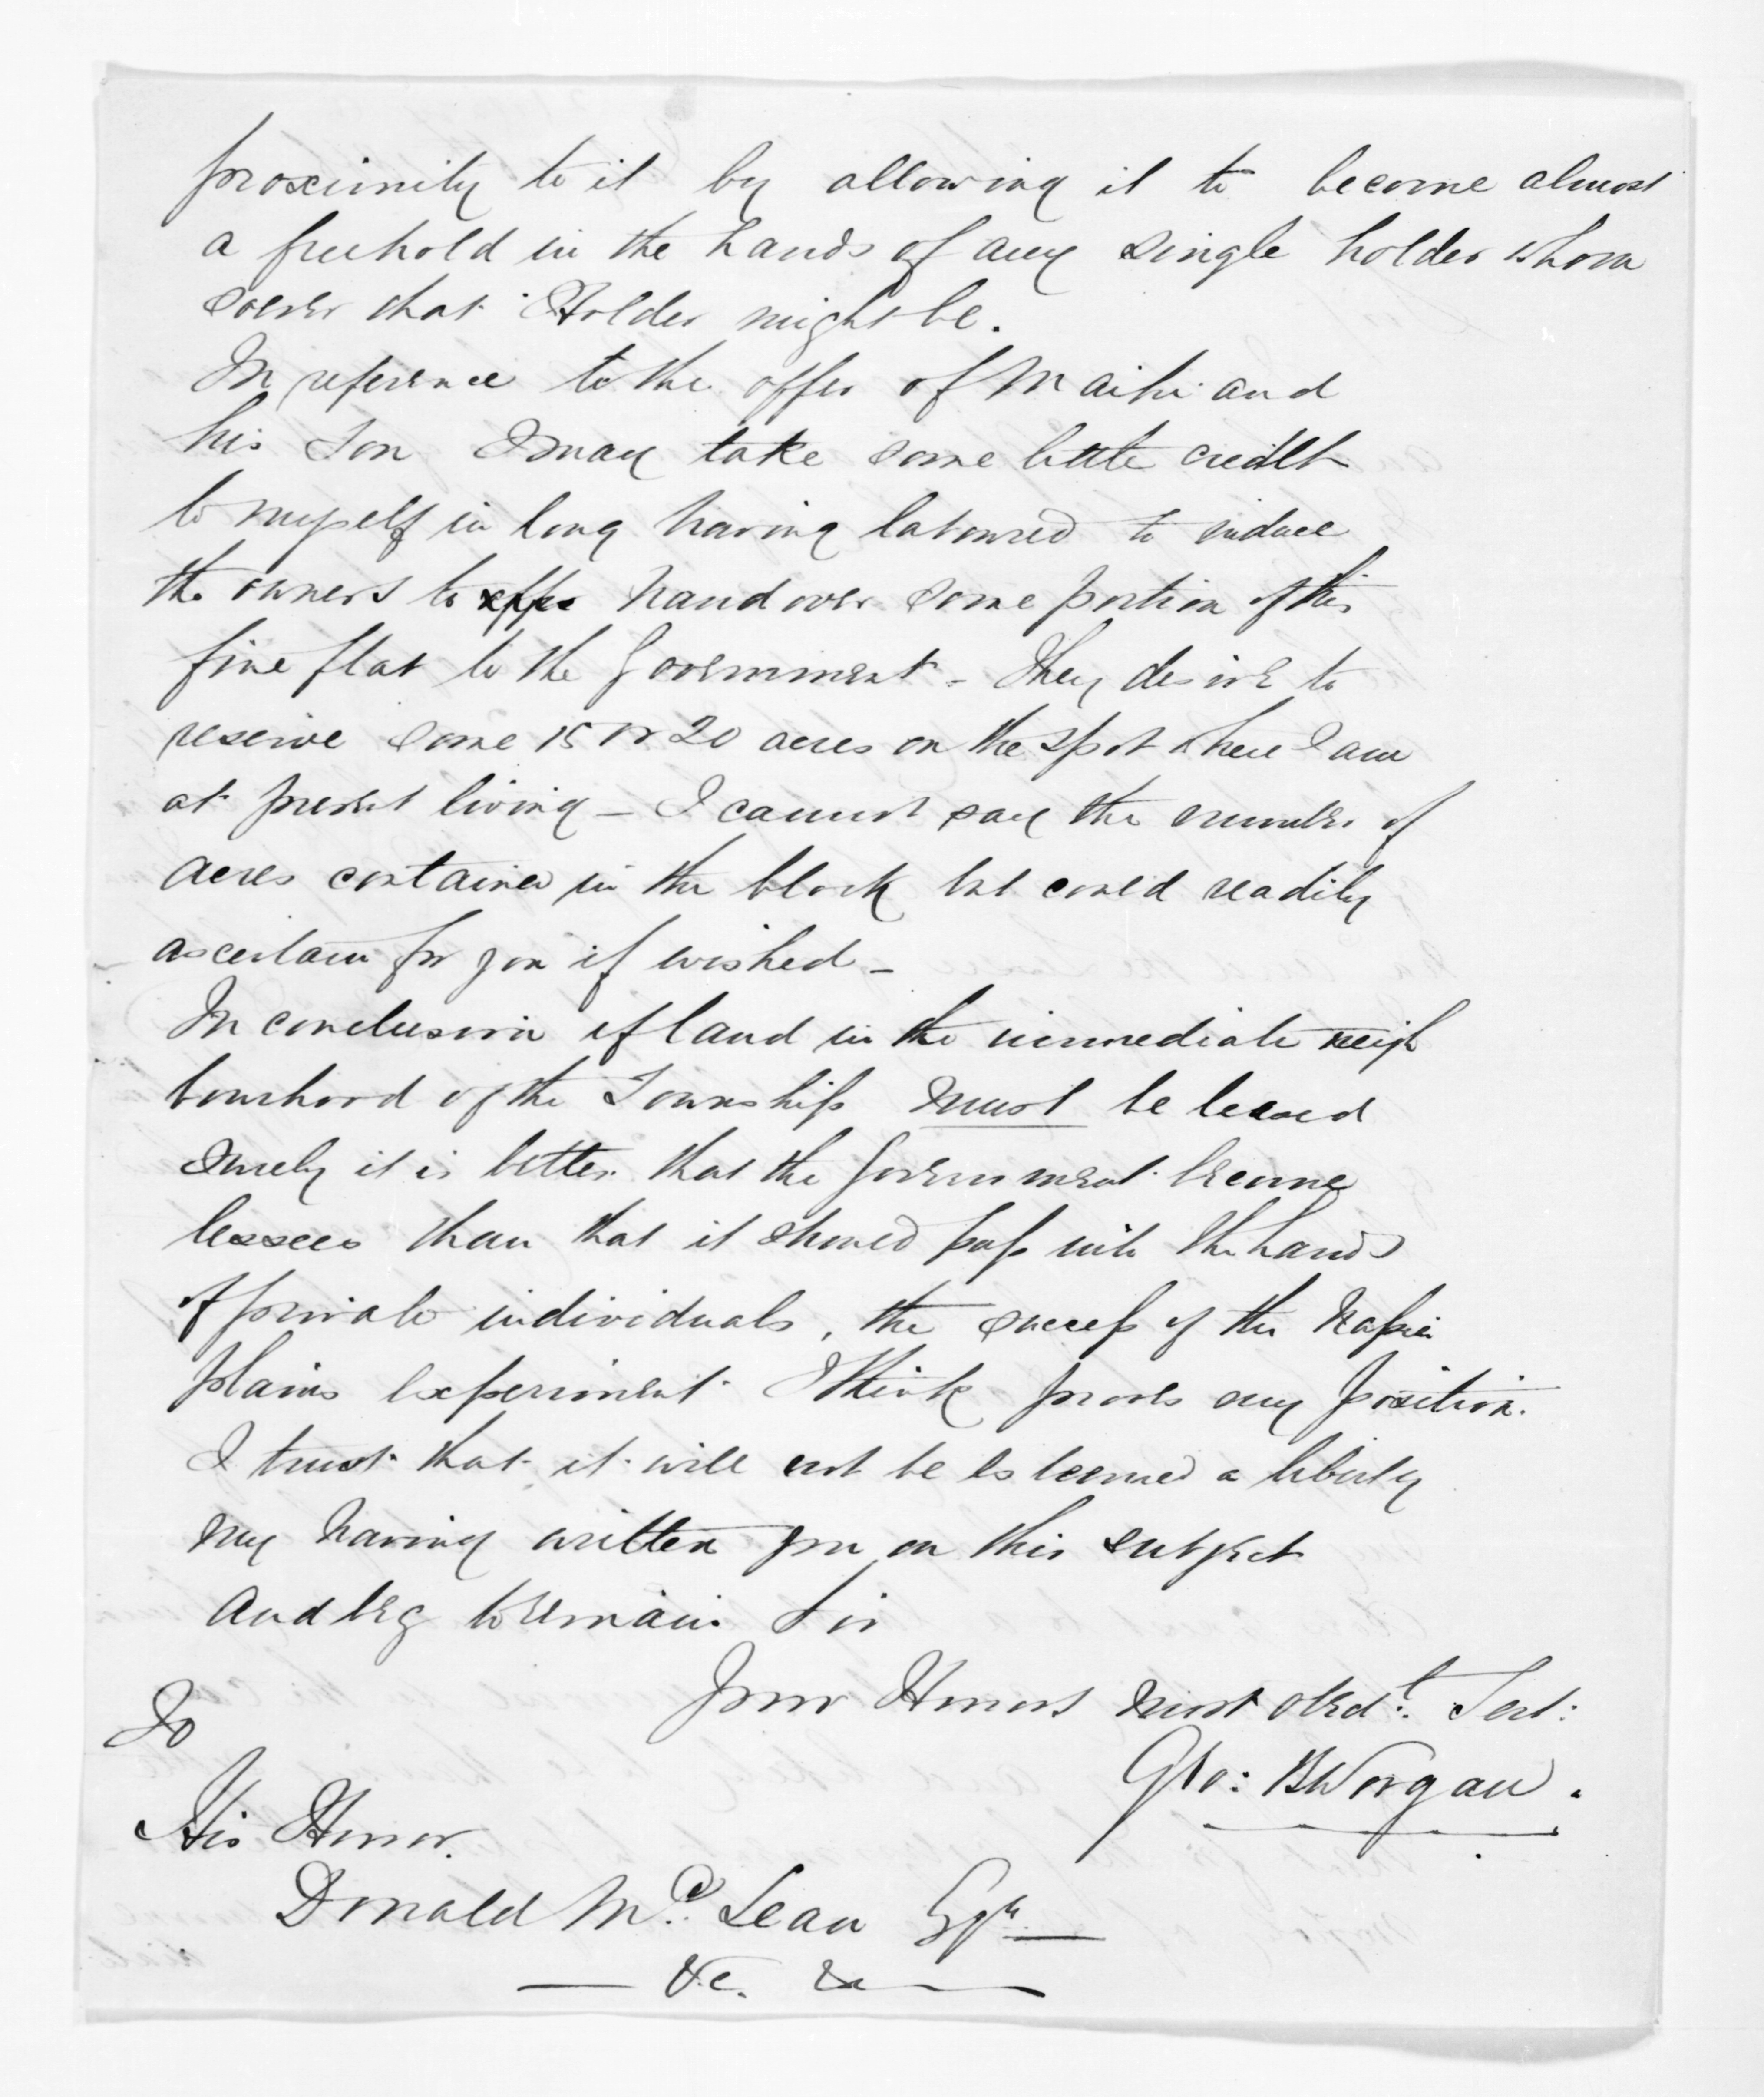 proximity to it by allowing it to become almost
a freehold in the hands of any single holder whom
soever that Holder might be.
In reference to the offer of Maihi and
his Son I may take some little credit
to myself in long having laboured to induce
the owners to offer hand over some portion of this
fine flat to the Government - They desire to
reserve some 15 or 20 acres on the spot where I am
at present living - I cannot say the number of
acres contained in the block but could readily
ascertain for you if wished -
In conclusion if land in the immediate neigh
bourhood of the Township must be leased
surely it is better that the Government become
lessees than that it should pass into the hands
of private individuals, the success of the Napier
plains experiment I think proves my position.
I trust that it will not be esteemed a liberty
my having written you on this subject
and beg to remain Sir
Your Honors most obedt. Servt:
Geo: B Worgan.
To
His Honor.
Donald McLean Esqr.
&c. &c